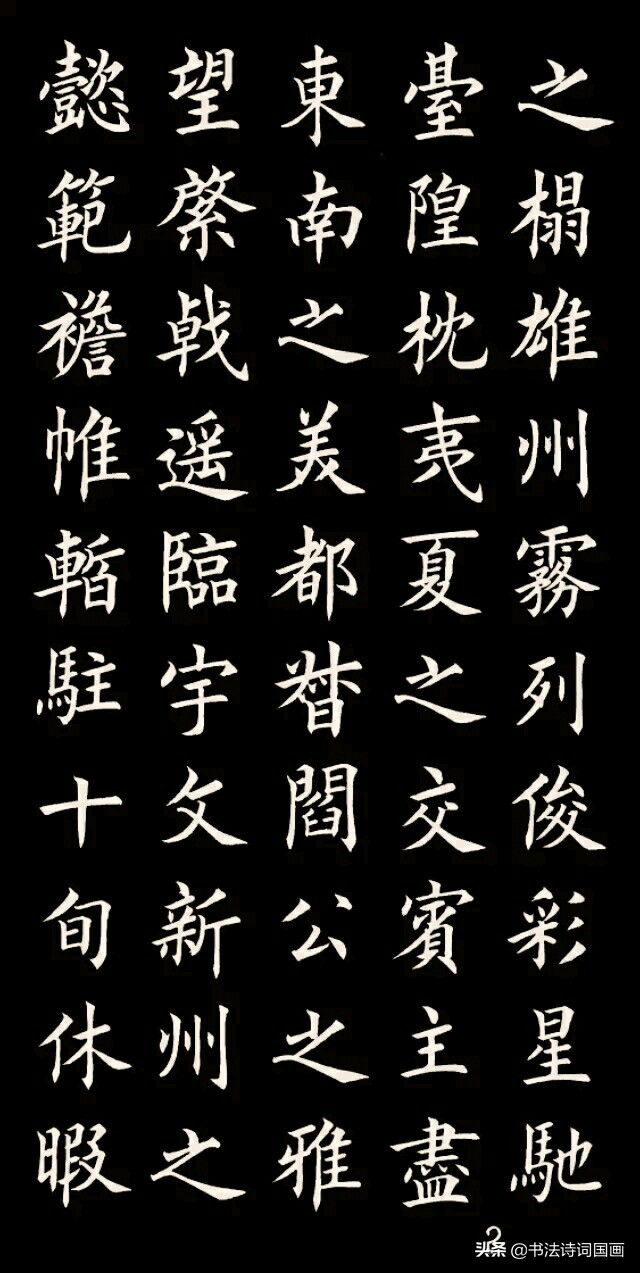 之榻雄州霧列俊彩星馳
臺隍枕夷夏之交賓主盡
東南之美都督閻公之雅
望棨戟遥臨宇文新州之
懿範襜帷暫駐十旬休暇
2
头条 @书法诗词国画